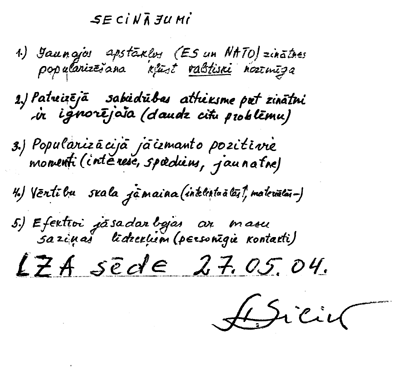 SECINĀJUMI
1.) Jaunajos apstākļos (ES un NATO) zinātnes
popularizēšana kļūst valstiski nozīmīga
2.) Patreizējā sabiedrības attieksme pret zinātni
ir ignorējoša (daudz citu problēmu)
3.) Popularizācijā jāizmanto pozitīvie
momenti (interese, spiediens, jaunatne)
4.) Vērtību skala jāmaina (intelektuālās↑, materiālās–)
5.) Efektīvi jāsadarbojas ar masu
saziņas līdzekļiem (personīgie kontakti)
LZA sēde 27.05.04.